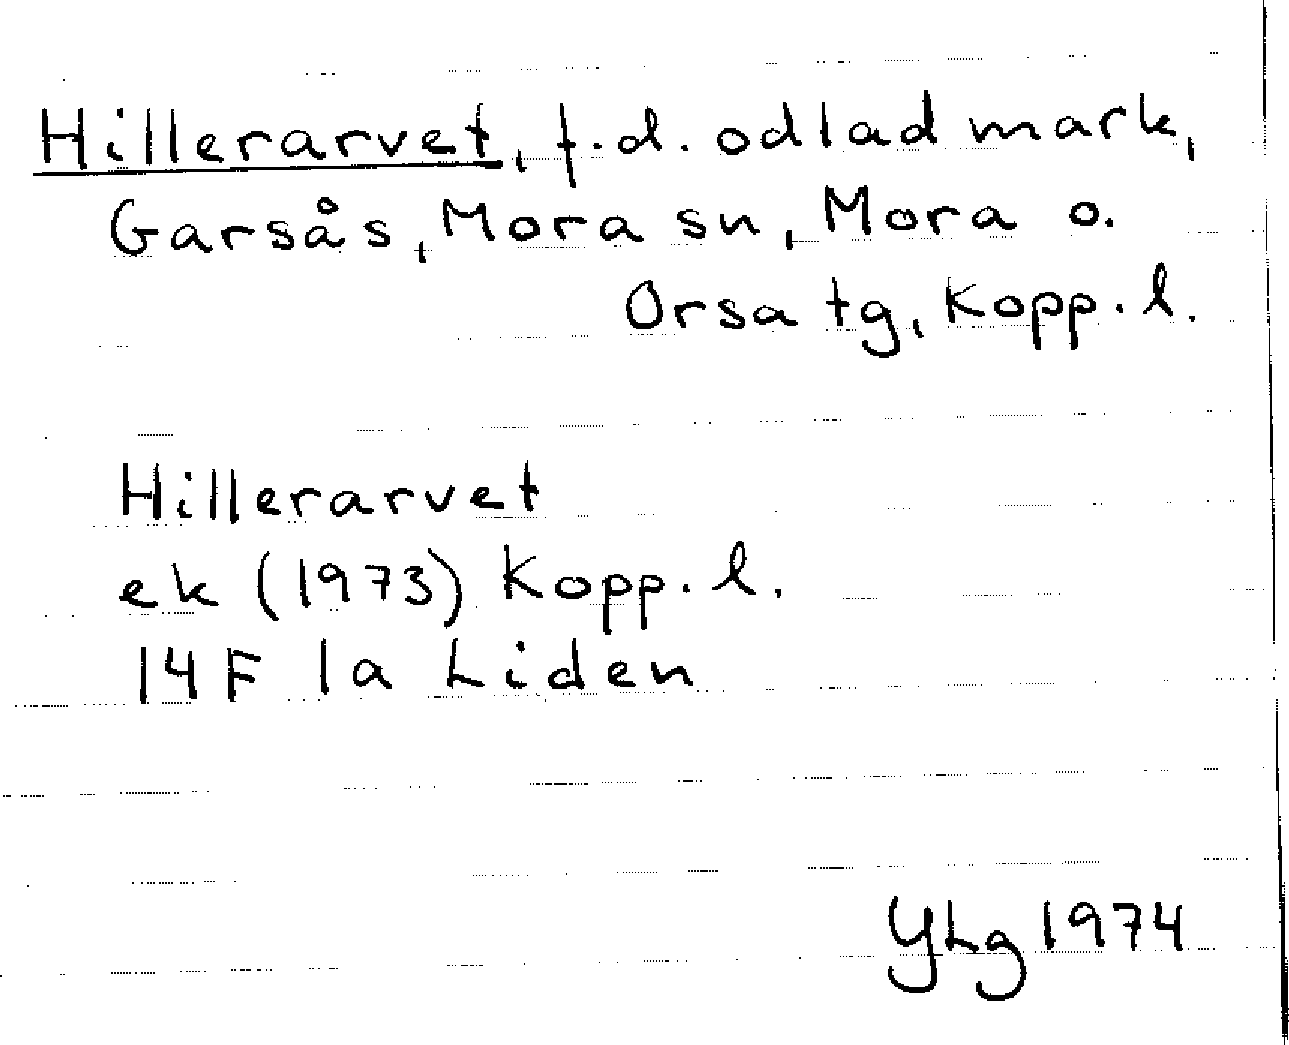 Hillerarvet, f.d. odlad mark,
Garsås, Mora sn, Mora o.
Orsa tg, Kopp. l.
Hillerarvet
ek (1973) Kopp. l.
14F 1a Liden
YLg 1974